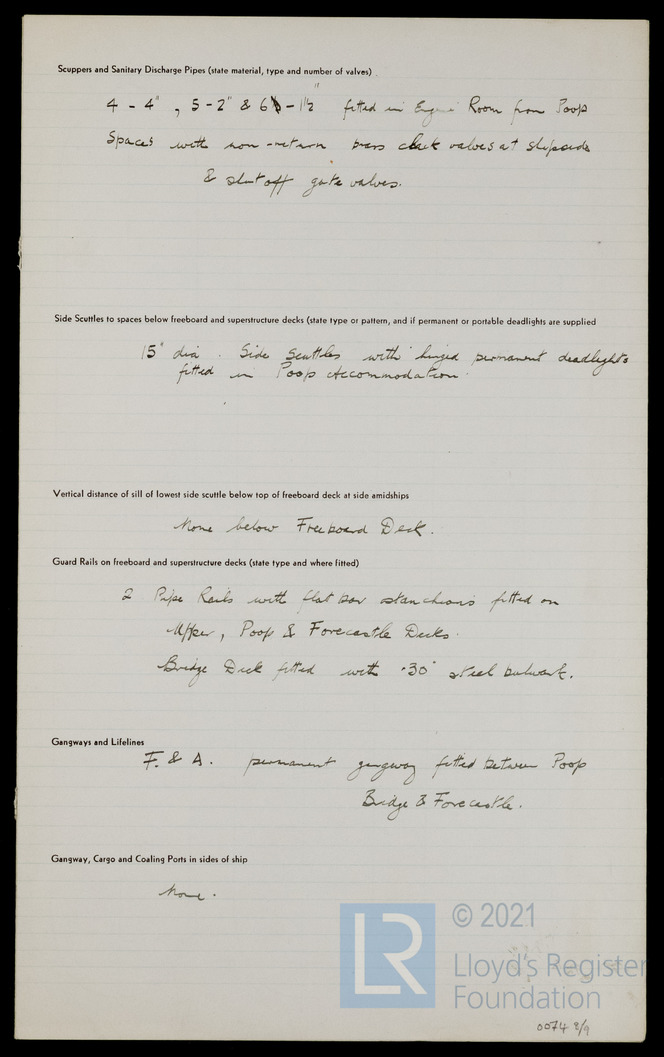 Scuppers and Sanitary Discharge Pipes (state material, type and number of valves)
4 - 4", 5 - 2" & 6 - 1½" fitted in Engine Room from Poop
Spaces with non-return brass check valves at shipside
& shut off gate valves.
Side Scuttles to spaces below freeboard and superstructure decks (state type or pattern, and if permanent or portable deadlights are supplied
15" dia. Side Scuttles with hinged permanent deadlights
fitted in Poop Accommodation.
Vertical distance of sill of lowest side scuttle below top of freeboard deck at side amidships
None below Freeboard Deck.
Guard Rails on freeboard and superstructure decks (state type and where fitted)
2 Pipe Rails with flat bar stanchions fitted on
Upper, Poop & Forecastle Decks.
Bridge Deck fitted with .30" steel bulwark.
Gangways and Lifelines
F. & A. permanent gangway fitted between Poop
Bridge & Forecastle.
Gangway, Cargo and Coaling Ports in sides of ship
None.
LR
© 2021
Lloyd's Register
Foundation
0074 2/9